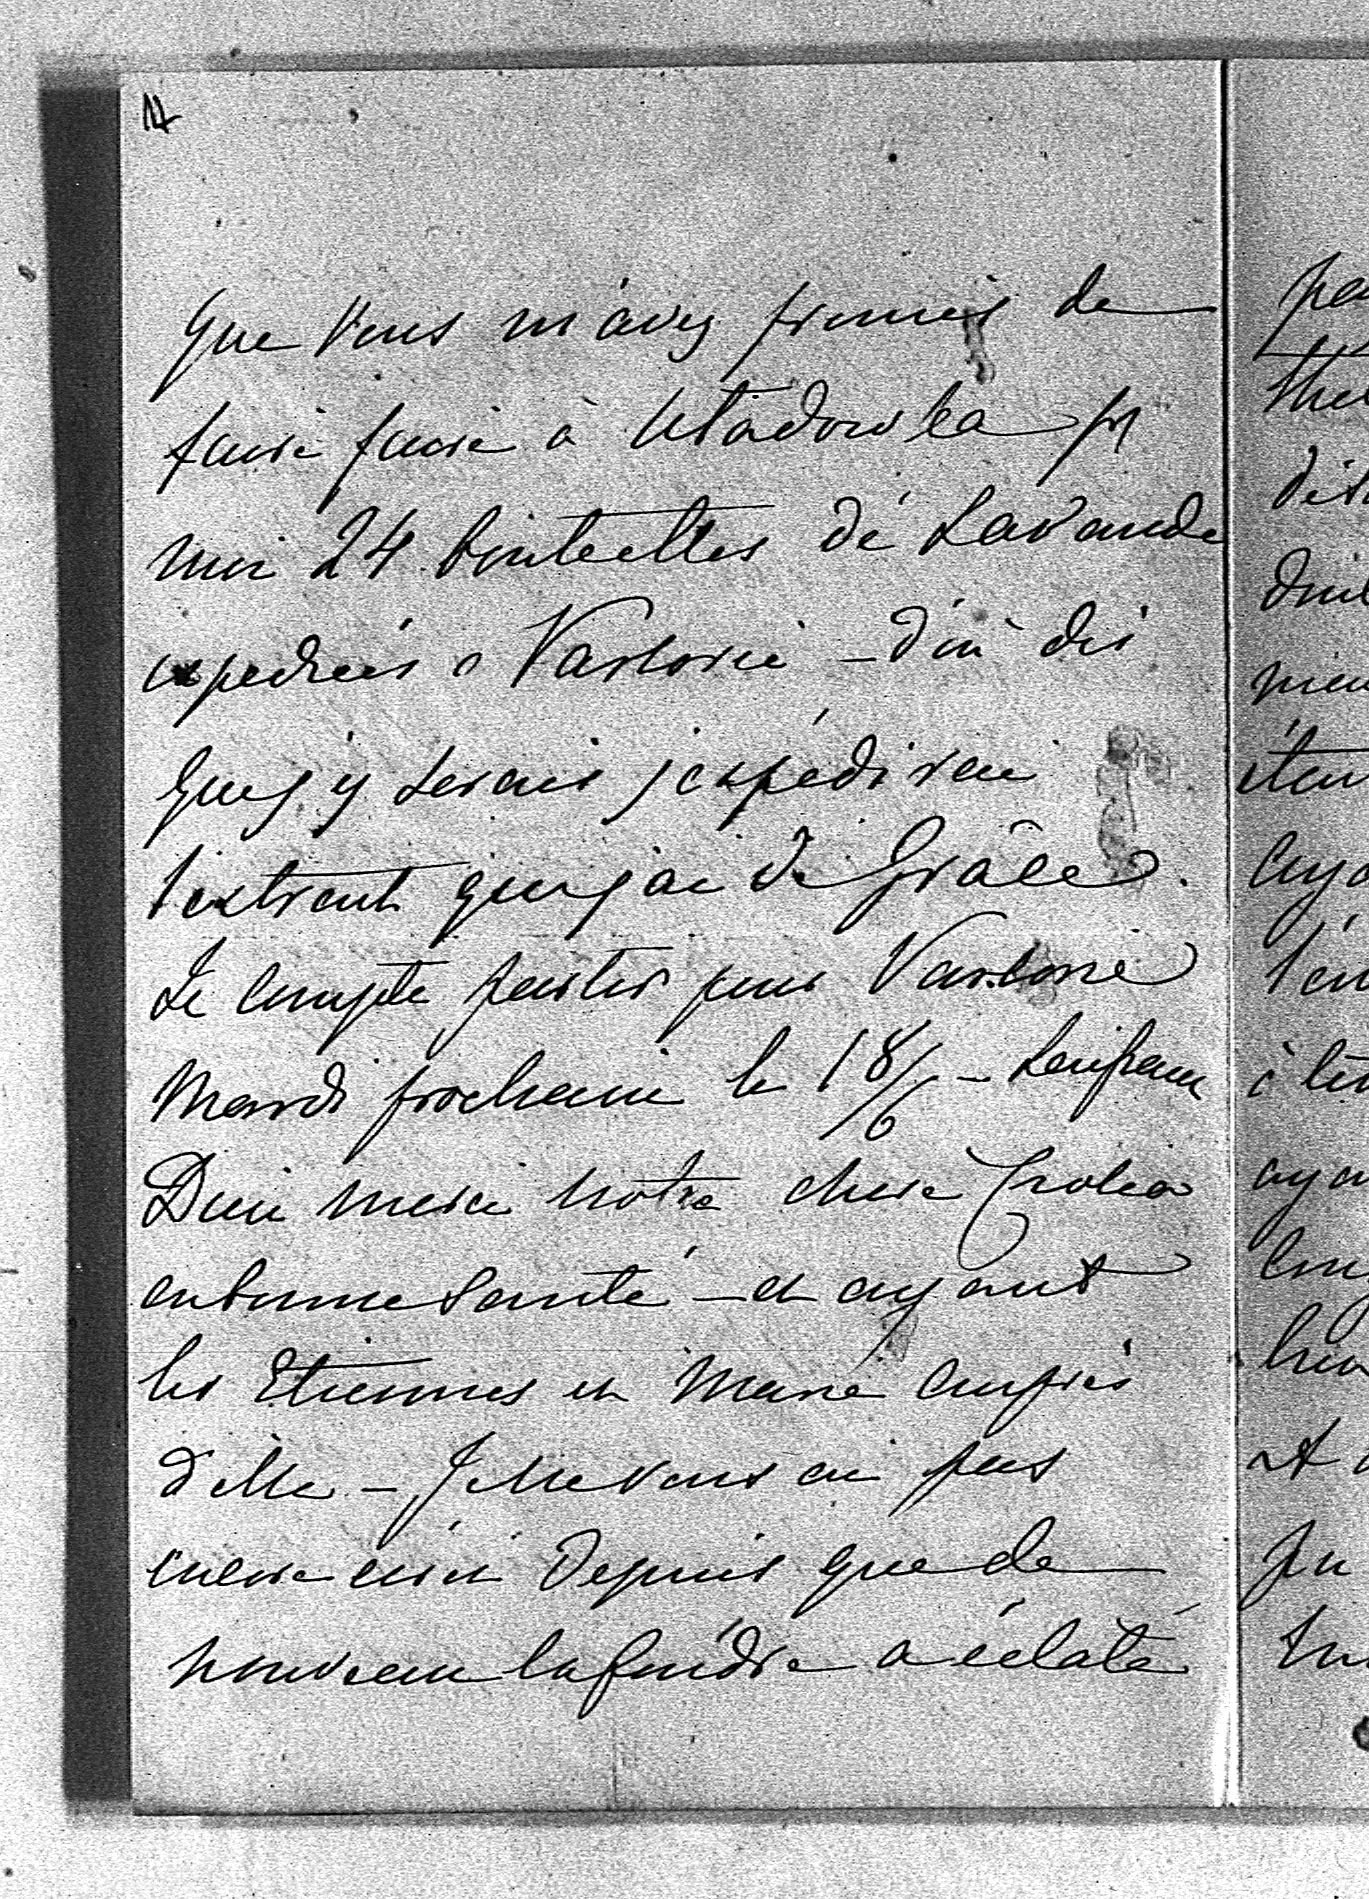 que vous m'avez promis de
faire faire à Utadowka pr
moi 24 bouteilles de Lavande
expediées à Varsovie – d'où dès
que j'y serais j'expédierai
l'extrait que j'ai de Grâce.
Je compte partir pour Varsovie
Mardi prochain le 18/6 –
Dieu merci notre chère
en bonne santé – et ayant
les Etiennes et Marie auprès
d'elle – Je ne vous ai pas
encore écrit depuis que de
nouveau la foudre a éclaté